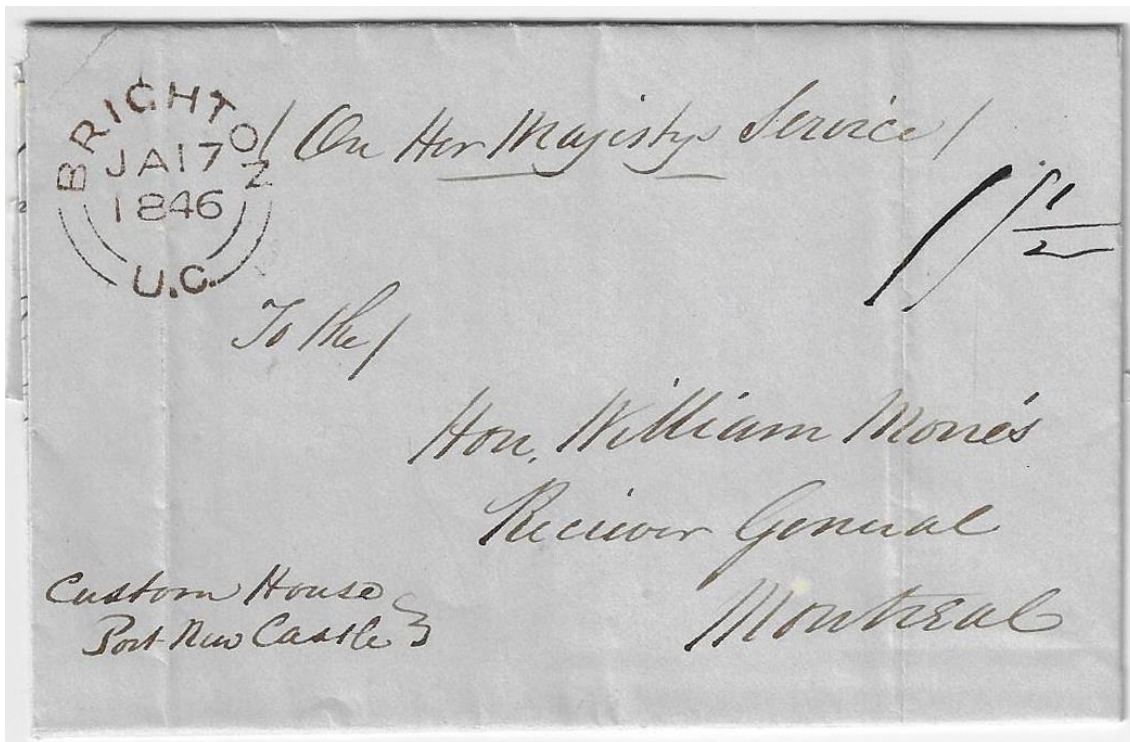 BRIGHTON
JA 17
1846
U.C.
/ On Her Majistys Service /
1/1½
To the /
Hon. William Morris
Reciever General
Montreal
Custom House
Port New Castle }